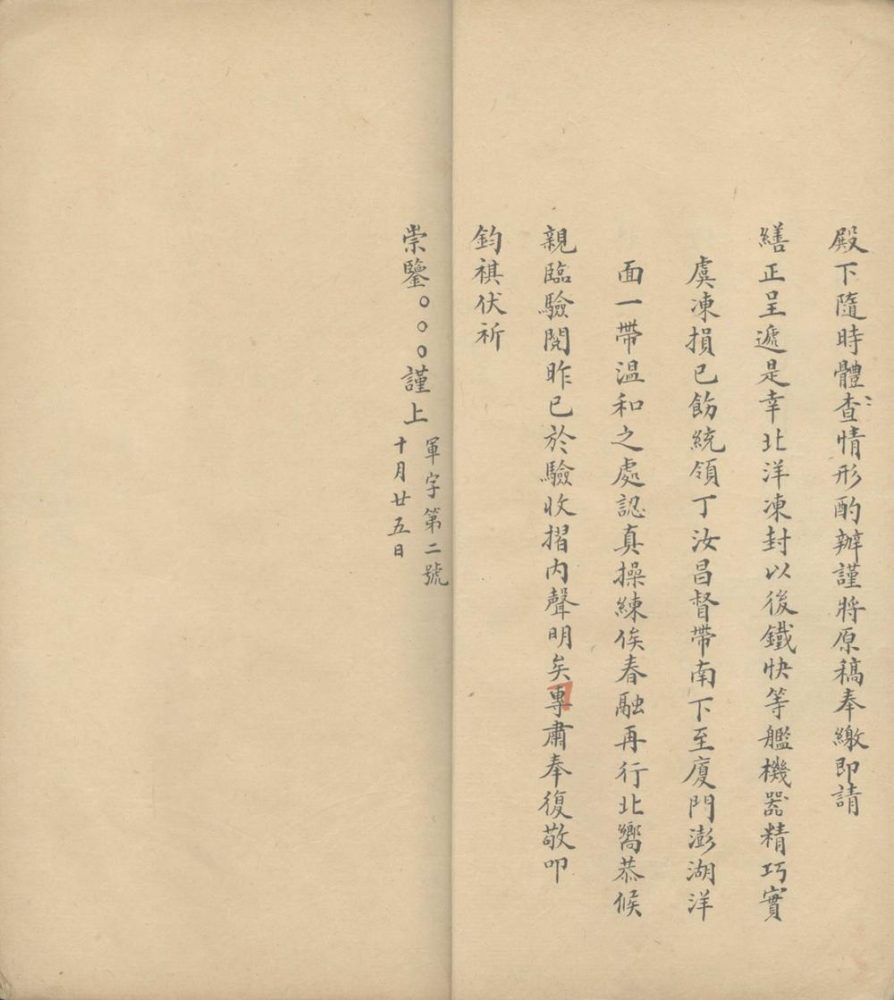 殿下隨時體查情形酌辦謹將原稿奉繳即請
繕正呈遞是幸北洋凍封以後鐵快等艦機器精巧實
虞凍損已飭統領丁汝昌督帶南下至廈門澎湖洋
面一帶温和之處認真操練俟春融再行北嚮恭候
親臨驗閱昨已於驗收摺内聲明矣專肅奉復敬叩
鈞祺伏祈
崇鑒○○○謹上
軍字第二號
十月廿五日